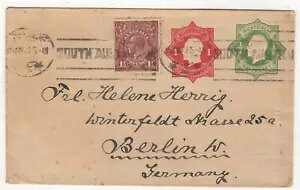 SOUTH AUS
Frl. Helene Herrig
Winterfeldt Strasse 25a
Berlin W.
Germany.